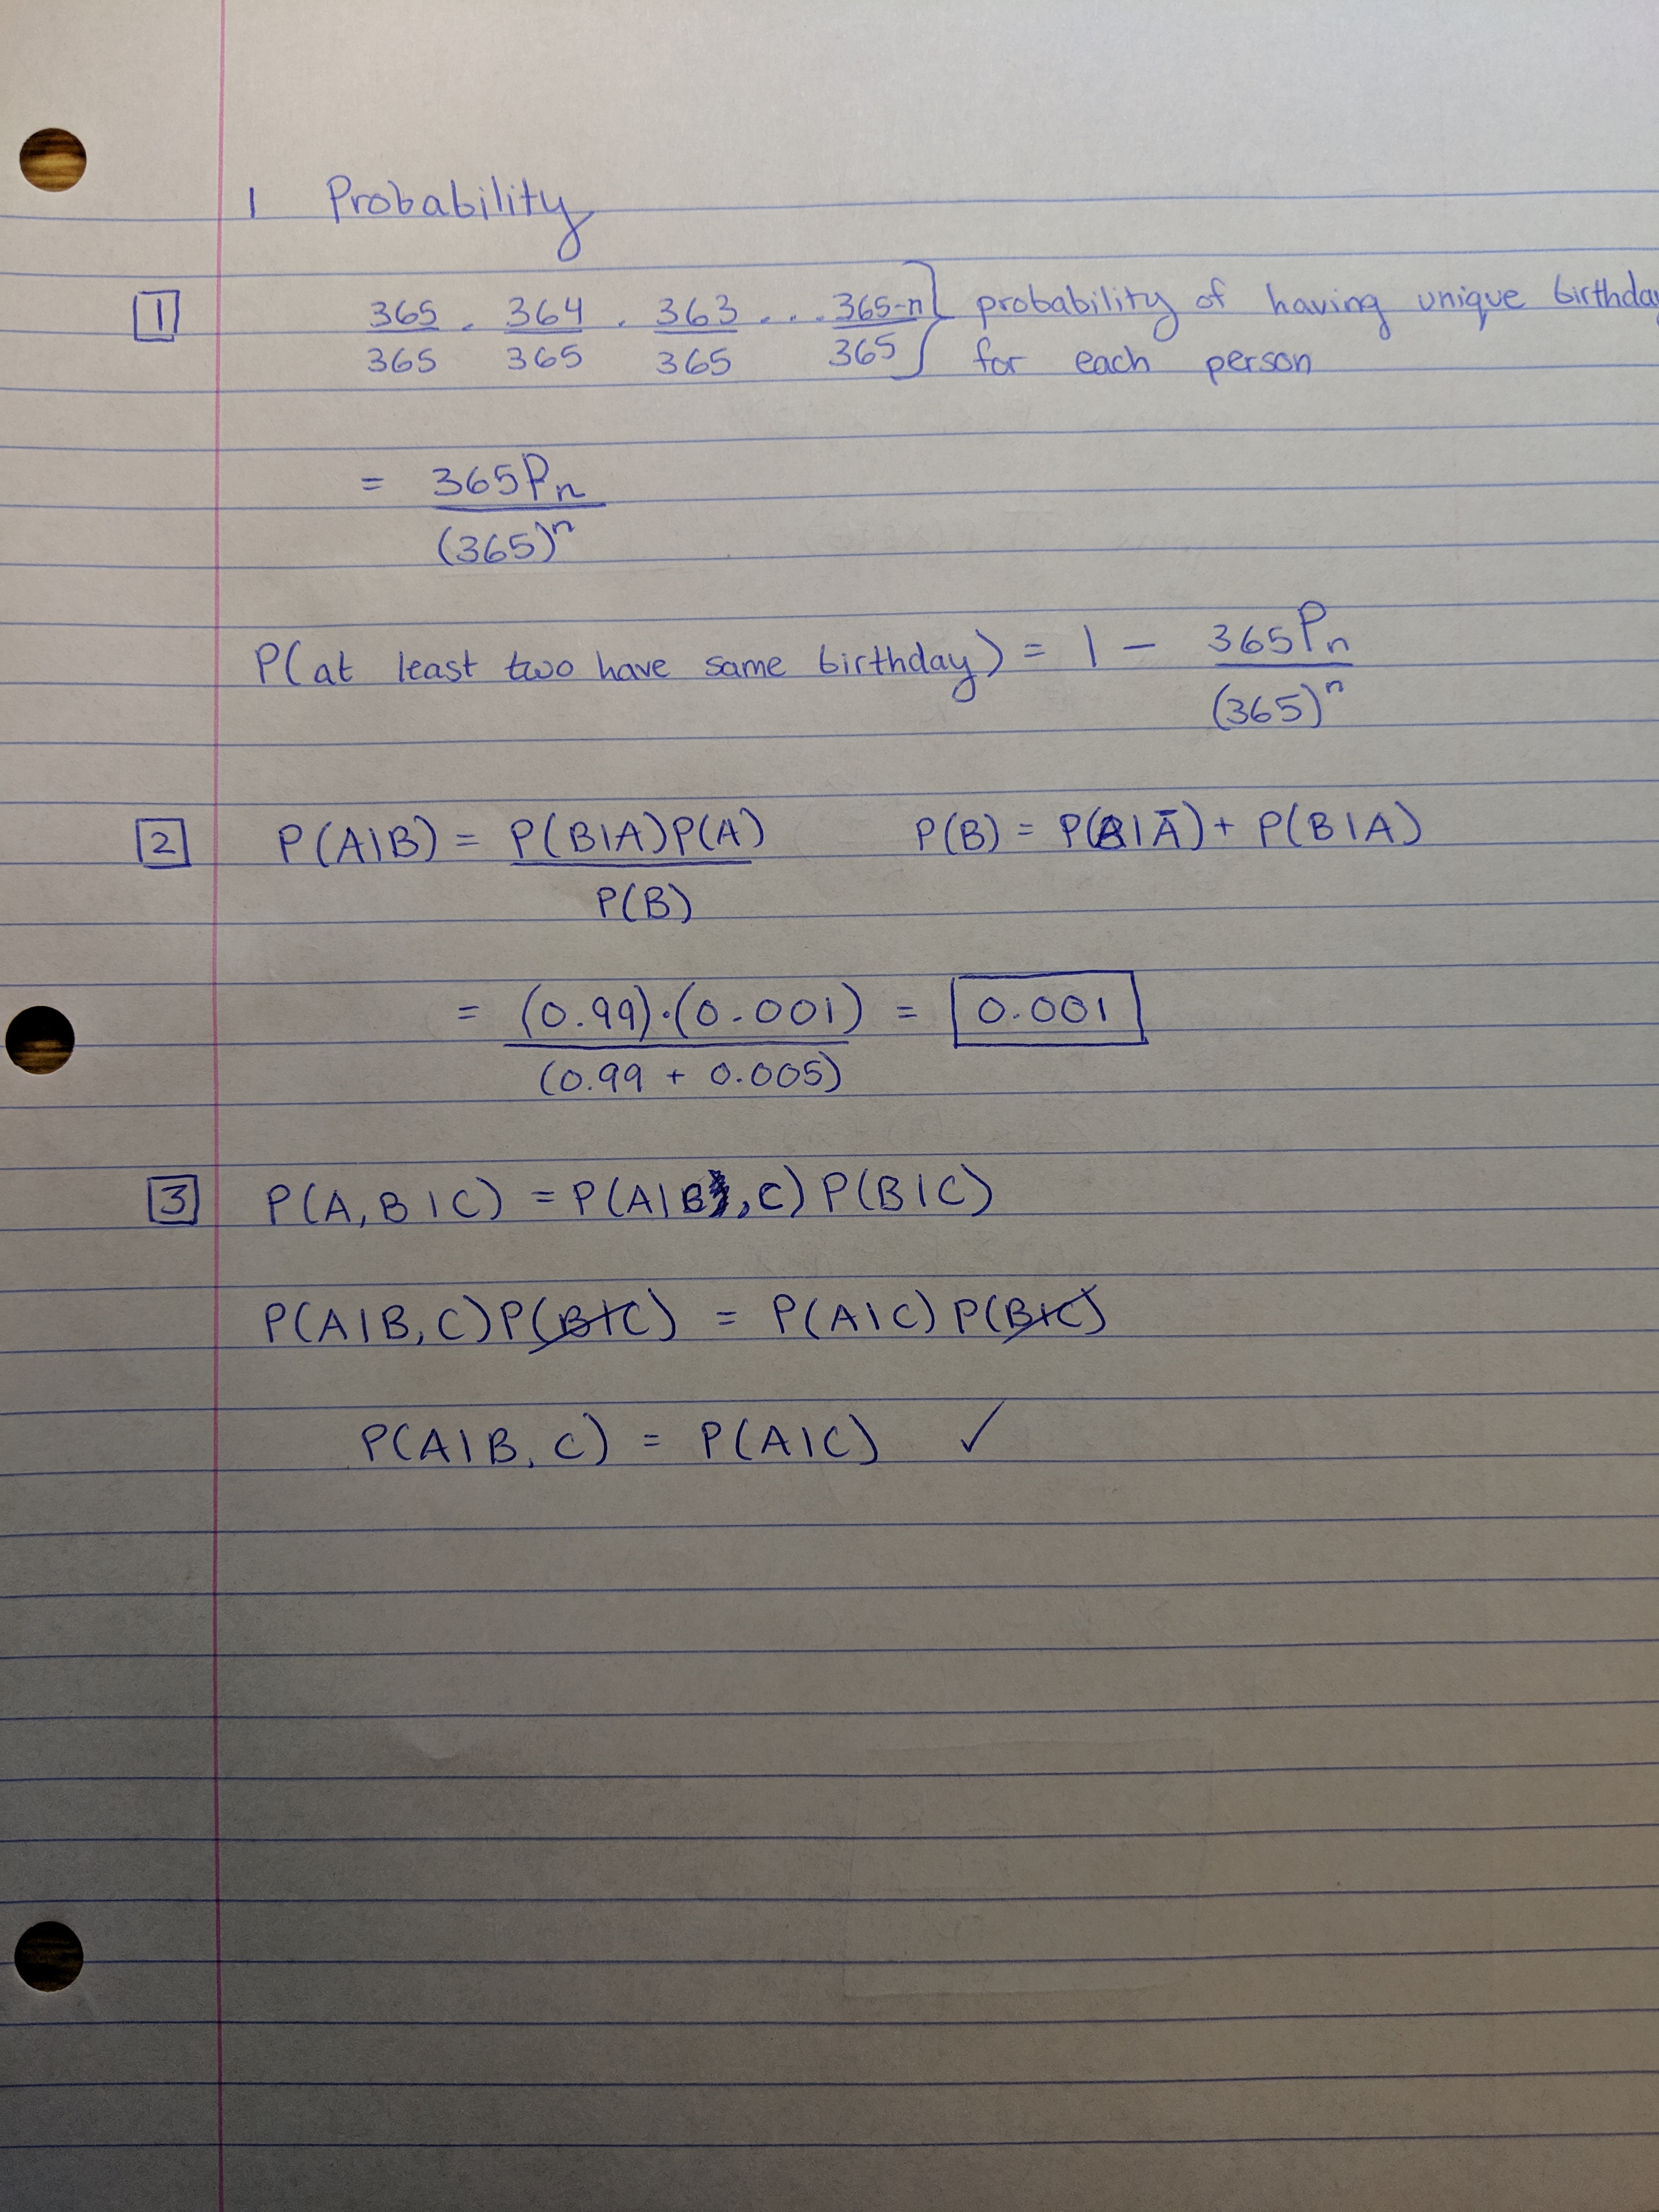 1 Probability
1 365/365 · 364/365 · 363/365 ... 365-n/365 } probability of having unique birthday
for each person
= 365Pn/(365)^n
P(at least two have same birthday) = 1 - 365Pn/(365)^n
2 P(A|B) = P(B|A)P(A)/P(B) P(B) = P(B|Ā) + P(B|A)
= (0.99)·(0.001)/(0.99 + 0.005) = 0.001
3 P(A,B|C) = P(A|B,C) P(B|C)
P(A|B,C)P(B|C) = P(A|C) P(B|C)
P(A|B,C) = P(A|C) ✓